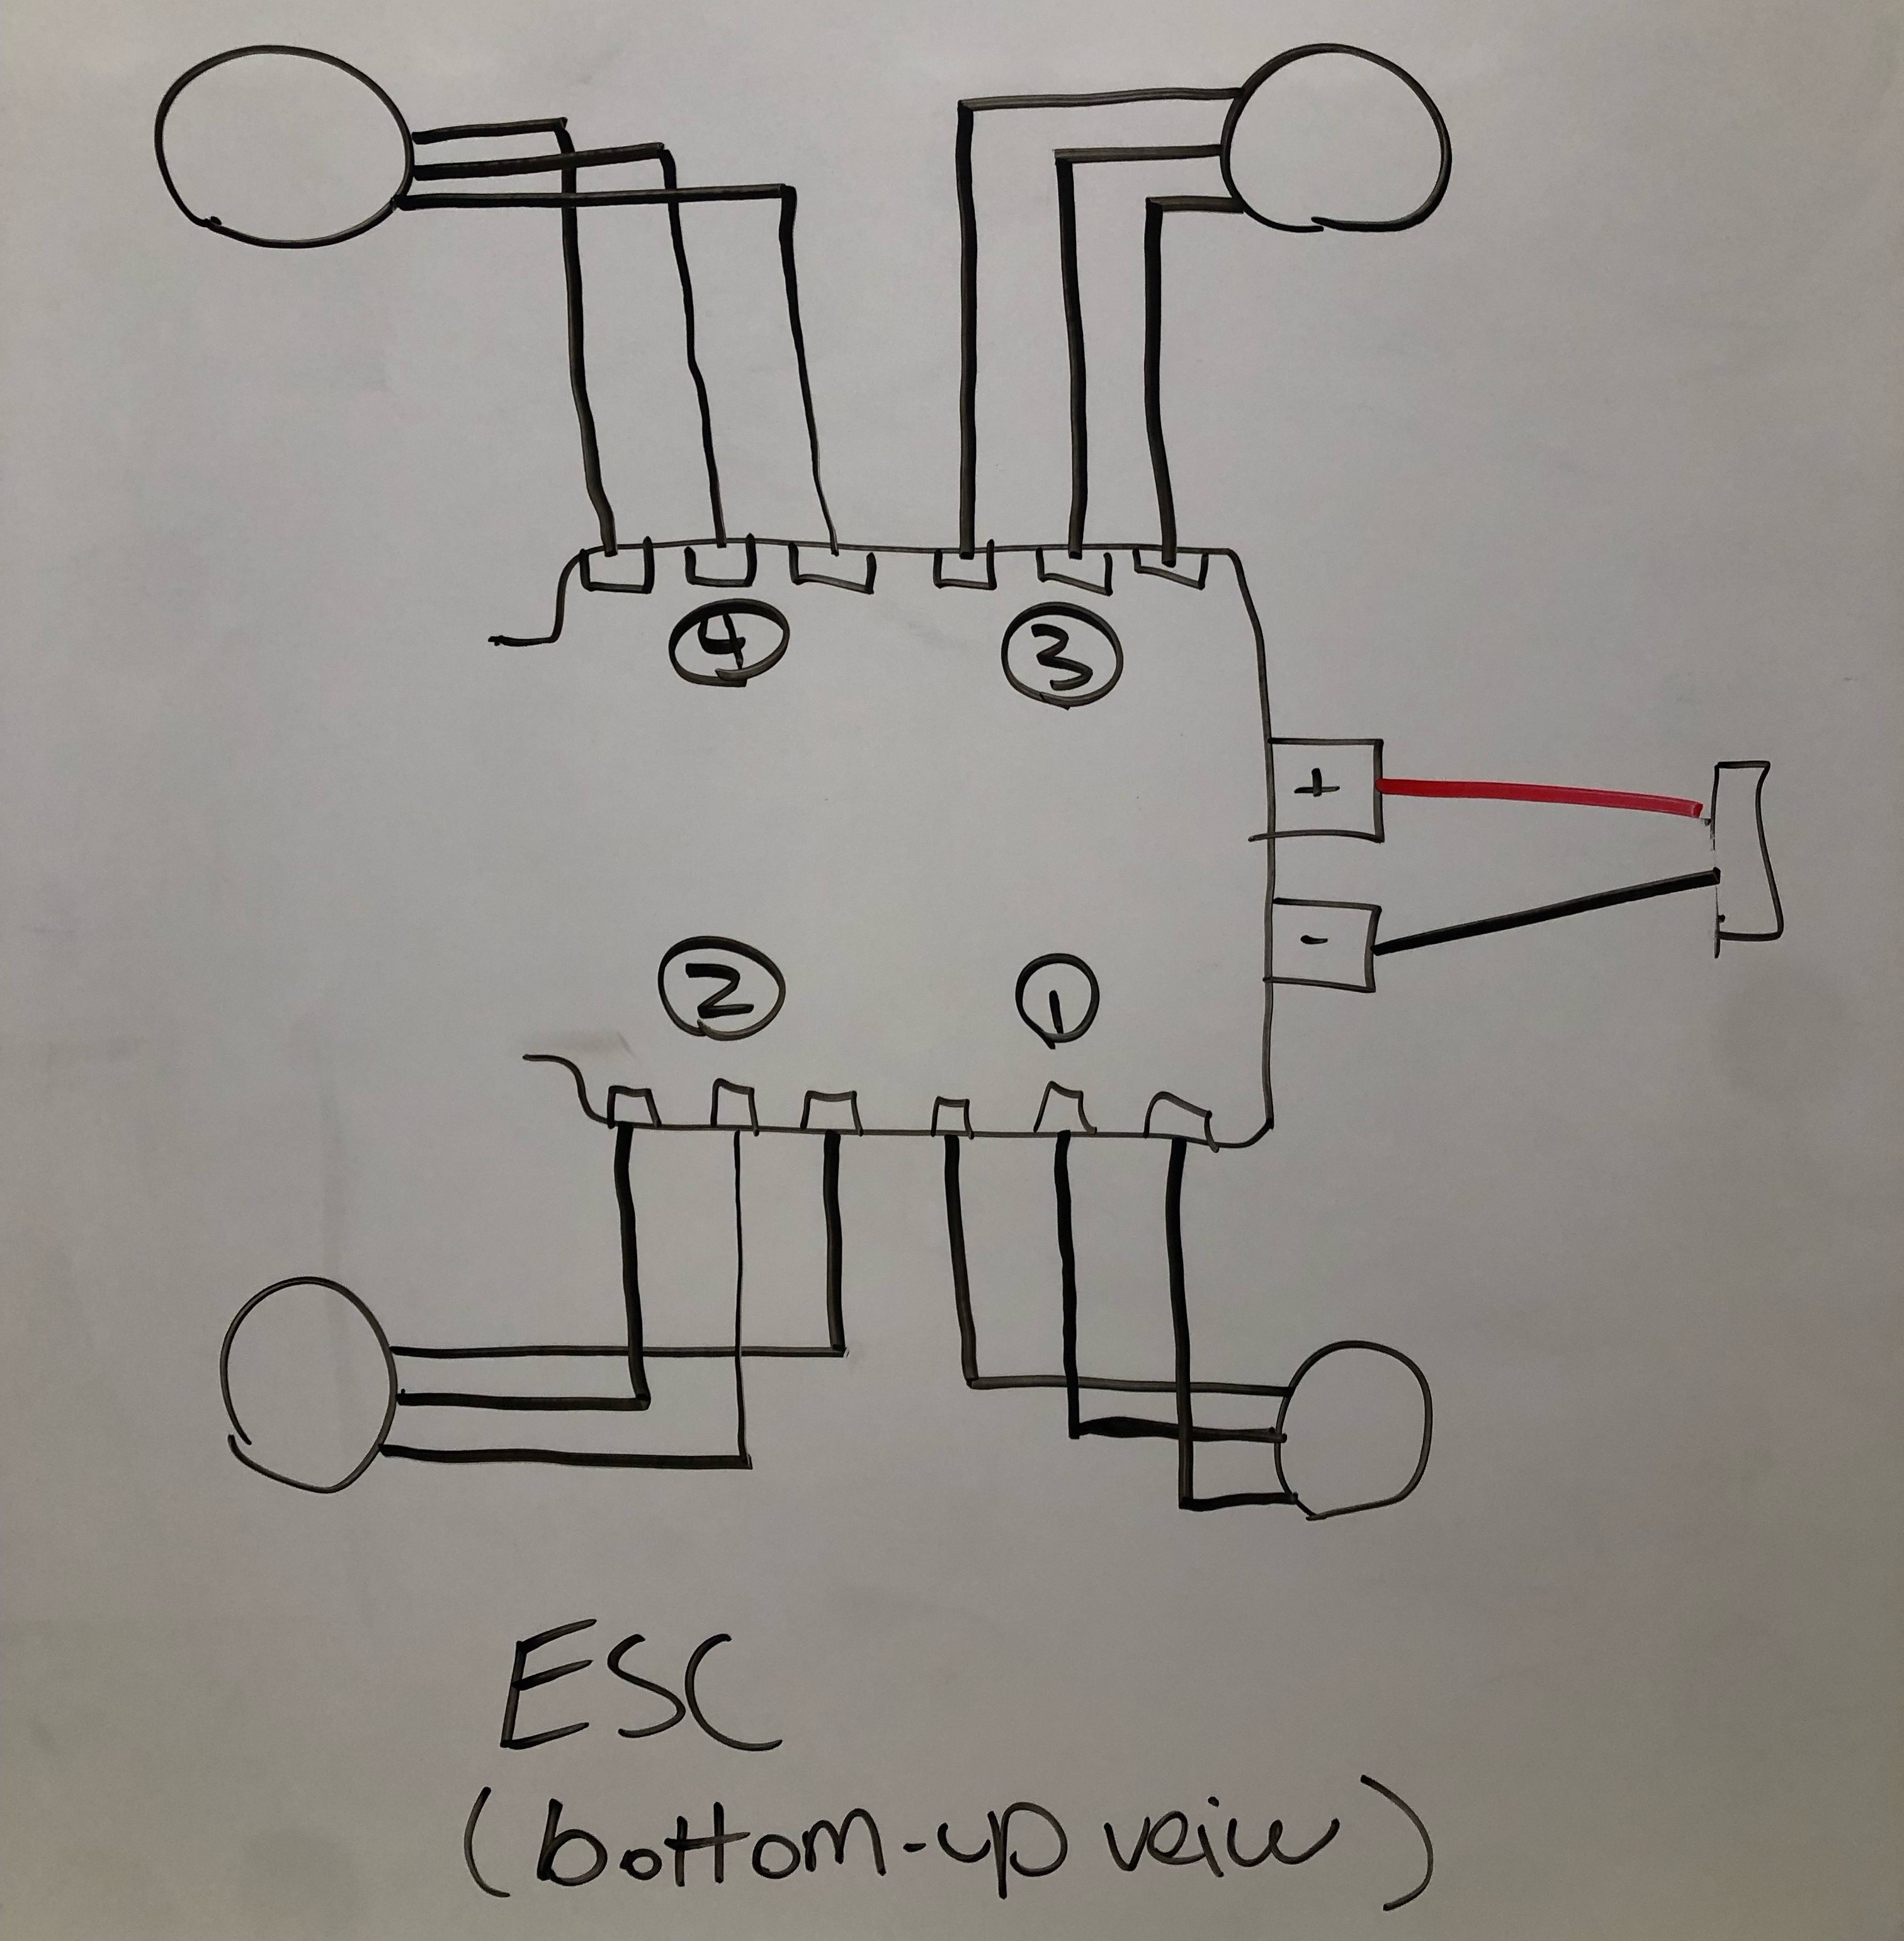 4 3
+
-
2 1
ESC
(bottom-up veiw)